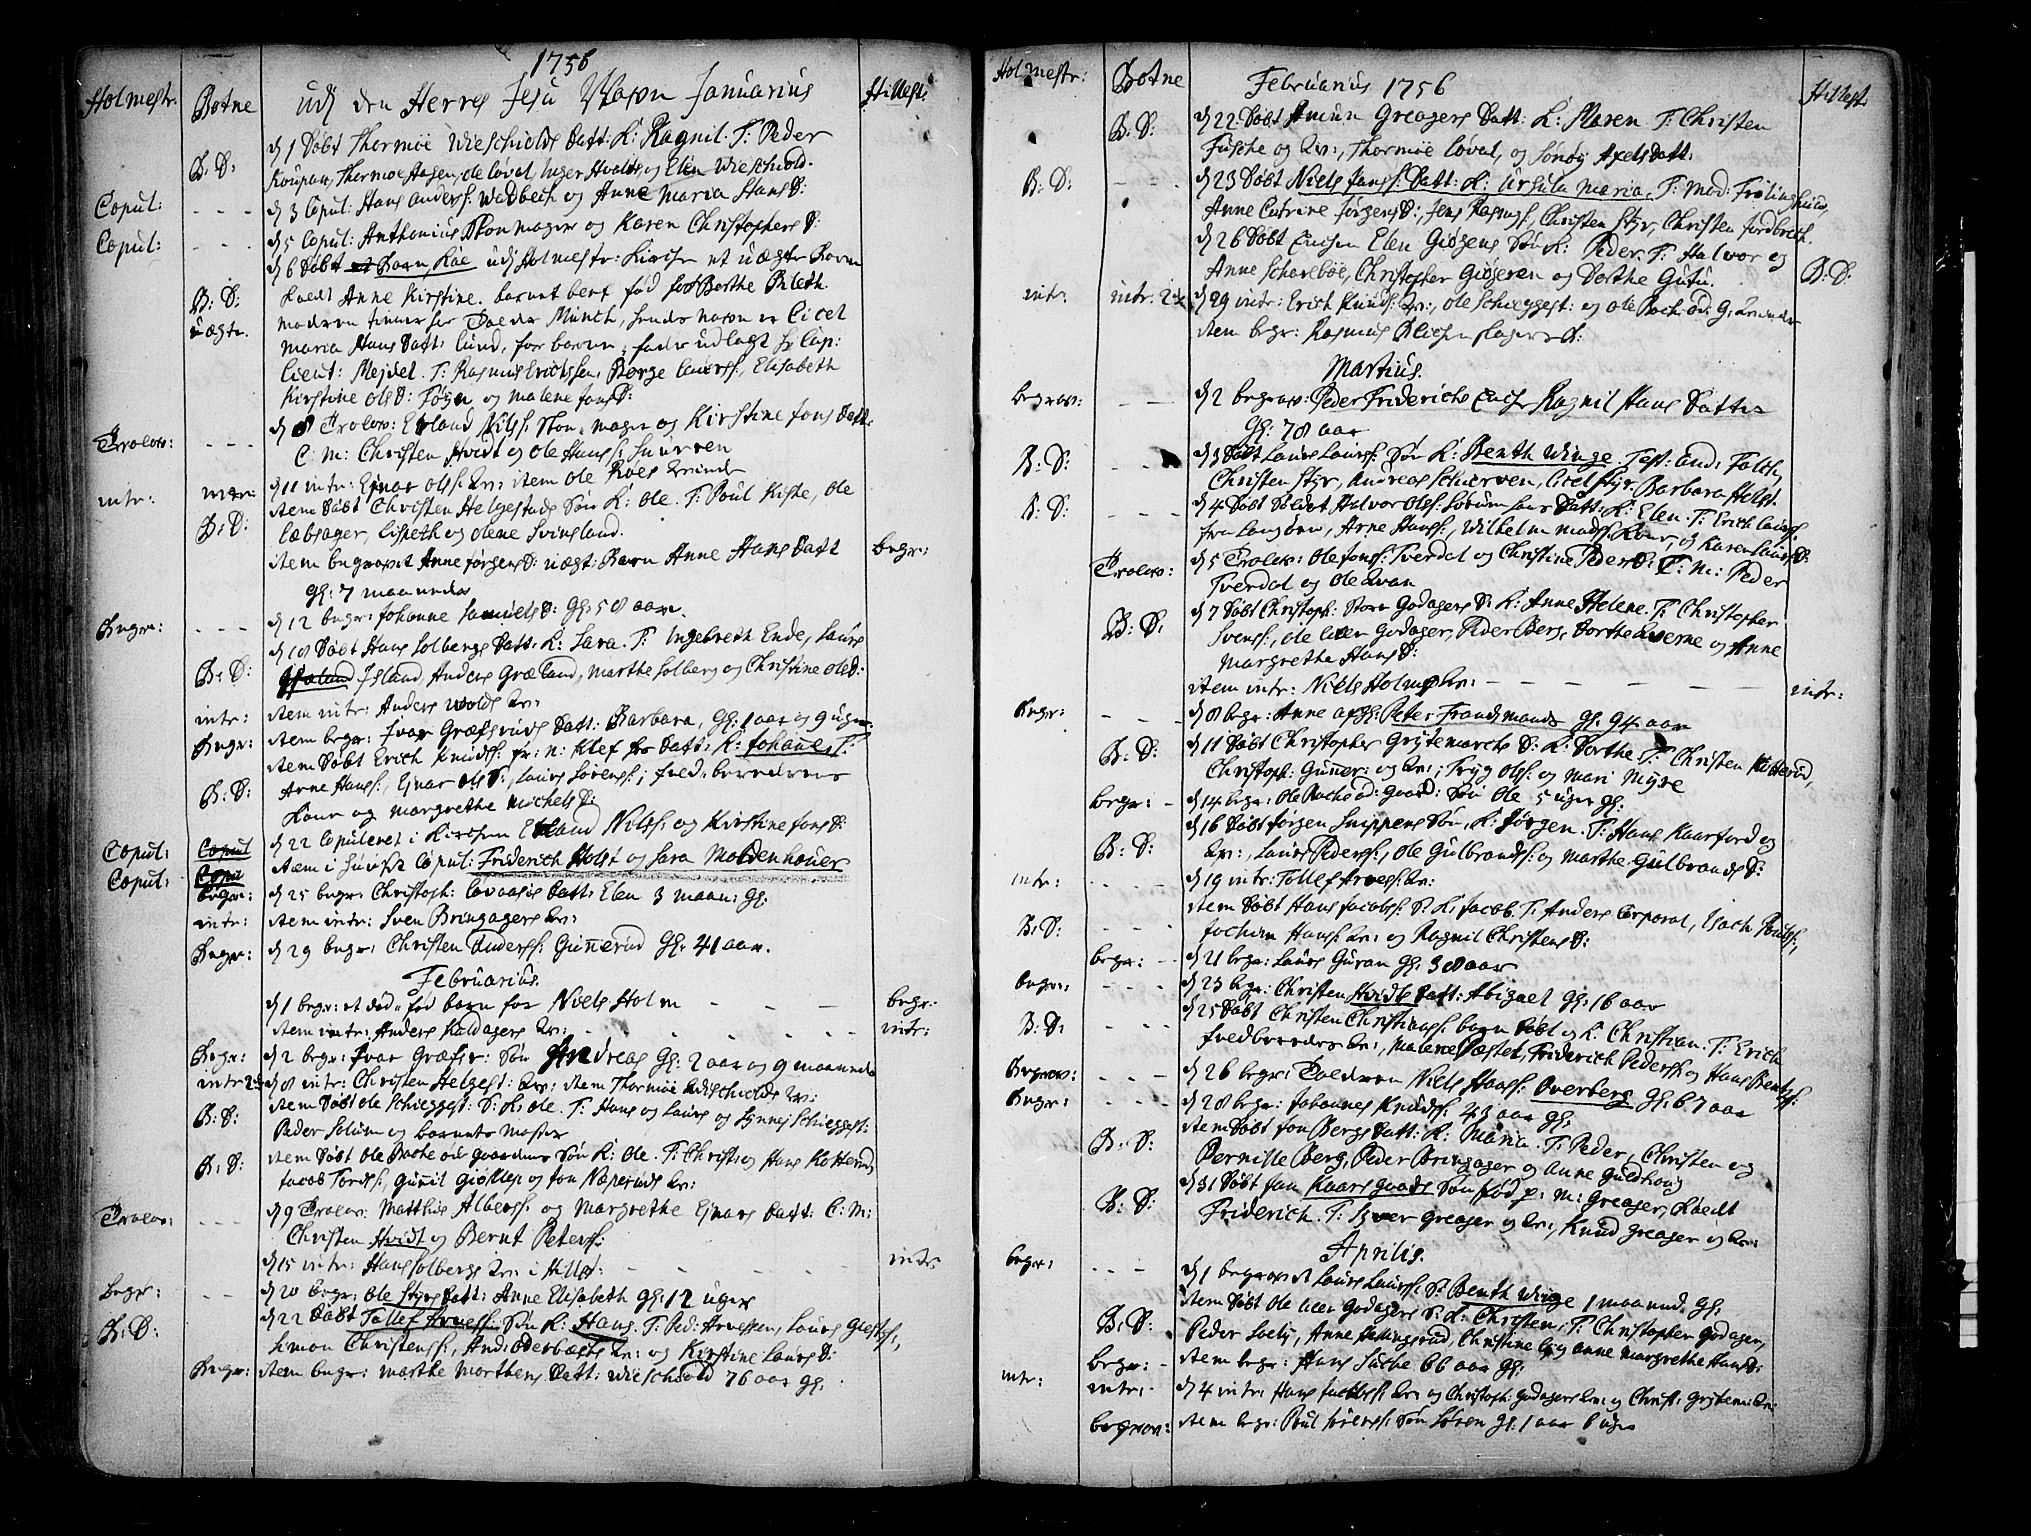 1756
Holmestr: Botne udj den Herres Jesu Nafn Januarius Hillest:
d 1 døbt Thormoe Wieschiolds Datt: K: Ragnil. T: Peder
B: D: Koupan, Thormoe Hagen, ole løval, Inger Hvales og Elen Wieschiold.
Copul: - - - d 3 Copul: Hans Anderss: Wadbech og Anne Maria Hans D:
Copul: - - - d 5 Copul: Anthonius Skomager og Karen Christophers D:
d 6 døbt udj Holmestr: Kirche et uægte Barn
B: D: Kaedt Anne Kirstine. barnet bert fød hos Berthe Phleth.
uægte. modren tienner hos Doeder Munch, hendes nafn er Cicel
Maria Hans Datt: Lund, for barne fader udlagt Hr Cap:
Lieut: Mejdel. T: Rasmus Erichssen, Børge Laurss:, Elisabeth
Kirstine ols D: Føyn og Malene Jens D:
Trolov: - - - d 8 Trolov: Erland Nilss: Skomager og Kirstine Jons Datt:
C: M: Christen Hvidt og ole Hanss: Snurren
intr: intr: d 11 intr: Ejnar olss: Kv: item ole Roes Kvinde
B: D: item døbt Christen Helgestads Søn K: ole. T: Poul Kiste, ole
Labsager, Lisbeth og olene Svinsland.
item begravet Anne Jørgens D: uægt: Barn Anne Hans Datt begr:
gl: 7 maaneder
Begr: - - - d 12 begr: Johanne Samuels D: gl: 58 aar.
d 18 døbt Hans Solbergs Datt: K: Sara. T: Ingebreth Ende, Laurs
B: D: Island, Anders Græsland, Marthe Solberg og Christine ols D:
intr: item intr: Anders Wolds Kv:
Begr: item begr: Ivar Græfsruds Datt: Barbara, gl: 1 aar og 9 uger
item døbt Erich Knudss: fr: n: Klef hs Datt: K: Johane T:
B: D: Arne Hanss:, Ejnar ols D:, Laurs Sørenss:, fred: beredrens
Kone og Margrethe Michels D:
Copul: Copul d 22 Copuleret i Kirchen Erland Nilss: og Kirstine Jons D:
Copul: Copu item i Huuset Copul: Friderich Holst og Sara Moldenhauer
begr: d 25 begr: Christoph: Lovaasis Datt: Elen 3 maan: gl:
intr: item intr: Sven Bringagers Kv:
Begr: d 29 begr: Christen Anderss: Gunnerud gl: 41 aar.
Februarius.
d 1 begr: et død-fød barn for Niels Holm - - - begr:
item intr: Anders Kaldagers Kv: - - - intr:
Begr: d 2 begr: Ivar Græfsr: Søn Andreas gl: 2 aar og 9 maaneder
intr 2de d 8 intr: Christen Helgest: Kv: item Thormoe Wieschiolds Kv:
B: D: item døbt ole Schieggest: S: K: ole. T: Hans og Laurs og Synnej Schieggest:
Peder Solum og barnets Moster
B: D: item døbt ole Bache ød: gaardens Søn K: ole. T: Christ: og Hans Kotterud
Jacob Tordss:, Gunnil Giøklep og Jon Næperuds Kv:
Trolov: - - - d 9 Trolov: Matthias Alberss: og Margrethe Ejnars Datt: C: M:
Christen Hvidt og Bernt Peterss:
d 15 intr: Hans Solbergs Kv: i Hillest: - - - intr:
begr: - - d 20 begr: ole Styrs Datt: Anne Elisabeth gl: 12 uger
B: D: d 22 døbt Tollef Arness: Søn K: Hans. T: Ped: Arnessen, Laurs Giest,
Simon Christenss:, And: Oderbæks Kv: og Kirstine Laurs D:
Begr: item begr: Marthe Morthens Datt: Wieschiold 76 aar gl:
Holmestr: Botne Februarius 1756 Hillest:
B: D: d 22 døbt Amun Greagers Datt: K: Maren. T: Christen
Fusche og Kv:, Thormoe Løval, og Sønøg Axels Datt:
B: D: - - - d 23 døbt Niels Janss: Datt: K: Ursula Maria. T: Mad: Frølinghuus,
Anne Cathrine Jørgens D:, Jens Rasmuss:, Christen Styr, Christen Jordbrech.
d 26 døbt Enchen Elen Giøgens Søn K: Peder. T: Halvor og
Anne Schareboe, Christopher Giøgeren og Dorthe Gutu. B: D:
intr: intr: 2de d 29 intr: Erich Knudss: Kv:, ole Schieggest: og ole Bach: ød: g: Kvinder
item begr: Rasmus Blichenslagers D:
Martius.
begrav: - - d 2 begrav: Peder Friderichs Enche Ragnil Hans Datter
gl: 78 aar
B: D: - - d 3 døbt Laurs Laurss: Søn K: Benth Winge. Test: And: Falch,
Christen Styr, Andreas Schierven, Cicel Styr, Barbara Helgst.
B: D: - - - d 4 døbt Soldet Halvor olss: Sørum hans Datt: K: Elen. T: Erich Laurss:
fra Langøen, Arne Hanss:, Wilhelm Madss: Kone, og Karen Laurs D:
Trolov: d 5 Trolov: ole Jonss: Tverdal og Christine Peders D: C: M: Peder
Tverdal og ole Kvan
B: D: d 7 døbt Christoph: Store Godagers D: K: Anne Helene. T: Christopher
Svenss:, ole lien Godager, Peder Berg, Dorthe Kverne og Anne
Margrethe Hans D:
item intr: Niels Holms Kv: - - - - - intr:
Begr: - - - d 8 begr: Anne afgl: Peter Frandsmands gl: 94 aar
B: D: d 11 døbt Christopher Grytemarchs D: K: Dorthe. T: Christen Kotterud,
Christoph: Gunner: og Kv:, Tryg olss: og Mari Myre
begr: - d 14 begr: ole Bache ød: gaard: Søn ole 5 uger gl:
B: D: d 16 døbt Jørgen Snippens Søn, K: Jørgen. T: Hans Kaarford og
Kv:, Laurs Pederss:, ole Gulbrandss: og Marthe Gulbrands D:
intr: - - - d 19 intr: Tollef Arness: Kv:
B: D: - - - item døbt Hans Jacobss: S: K: Jacob. T: Anders Corporal, Isach Poulss:,
Jochum Hanss: Kv: og Ragnil Christens D:
begr: - - d 21 begr: Laurs Guran gl: 38 aar
begr: - - - d 23 begr: Christen Hvidts Datt: Abigael gl: 16 aar
B: D: - - - d 25 døbt Christen Christianss: barn døbt og K: Christian. T: Erich
fredbereders Kv:, Malene Pæstel, Friderich Pederss: og Hans Bentss:
Begrav: - - - d 26 begr: Doedren Niels Hanss: Overberg gl: 67 aar
Begr: - - - d 28 begr: Johannes Knudss: 43 aar gl:
B: D: item døbt Jon Bergs Datt: K: Maria. T: Peder, Christen og
Pernille Berg, Peder Bringager og Anne Guldhoug
B: D: d 31 døbt Jan Kaarsgaards Søn fød p: M: Greager, Kaedt
Friderich. T: Iver Greager og Kv:, Knud Greager og Kv:
Aprilis.
begr: - - - d 1 begravet Laurs Laurss: S: Benth Winge 1 maaned gl:
B: D: item døbt ole lien Godagers S: K: Christen. T: Christopher Godager,
Peder Soelj, Anne Hallingsrud, Christine og Anne Margrethe Hans D:
begr: - item begr: Hans Fuske 66 aar gl:
intr: intr: d 4 intr: Hans Jacobss: Kv: og Christoph: Godagers Kv: og Christ: Grytem: Kv:
begrav: item begr: Poul Sørenss: Søn Søren gl: 1 aar 8 uger